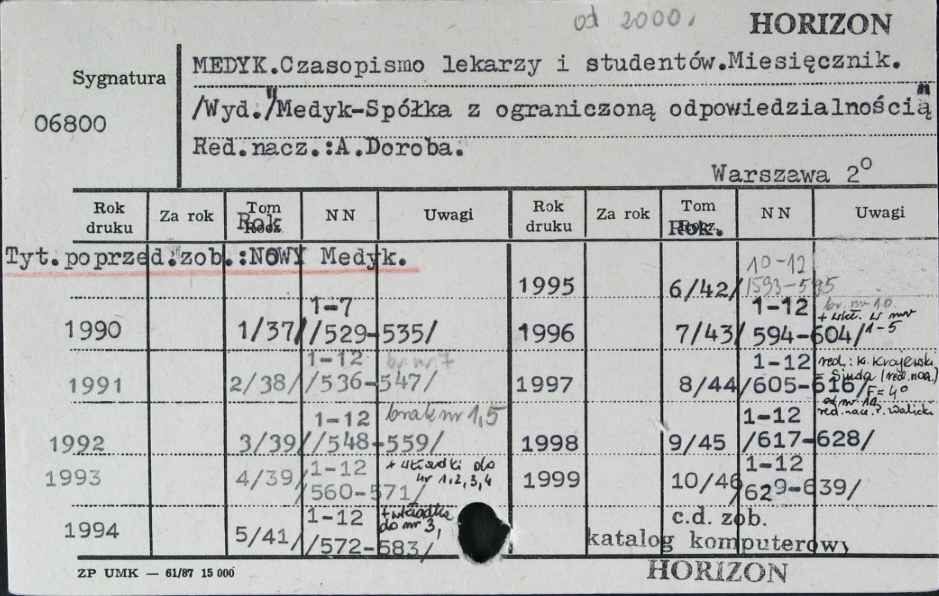 od 2000.
HORIZON
Sygnatura
06800
MEDYK.Czasopismo lekarzy i studentów.Miesięcznik.
/Wyd."/Medyk-Spółka z ograniczoną odpowiedzialnością"
Red.nacz.:A.Doroba.
Warszawa 2°
Rok druku Za rok Tom Rok NN Uwagi Rok druku Za rok Tom Rok. NN Uwagi
Tyt.poprzed.zob.:NOWY Medyk.
1990 1/37/ 1-7 /529-535/
1991 2/38/ 1-12 /536-547/ br. nr 7
1992 3/39/ 1-12 /548-559/ brak nr 1,5
1993 4/39/ 1-12 /560-571/ + wkładki do nr 1,2,3,4
1994 5/41/ 1-12 /572-583/ + wkładka do nr 3,
1995 6/42/ 10-12 /593-595
1996 7/43/ 1-12 594-604/ br. nr 10 + wkł. w nr 1-5
1997 8/44 1-12 /605-616/ red.: K. Krajewski = Siuda (red. nacz.) F=4° od nr 10 red. nacz. P. Walicki
1998 9/45 1-12 /617-628/
1999 10/46 1-12 /629-639/
c.d. zob.
katalog komputerowy
HORIZON
ZP UMK — 61/87 15 000